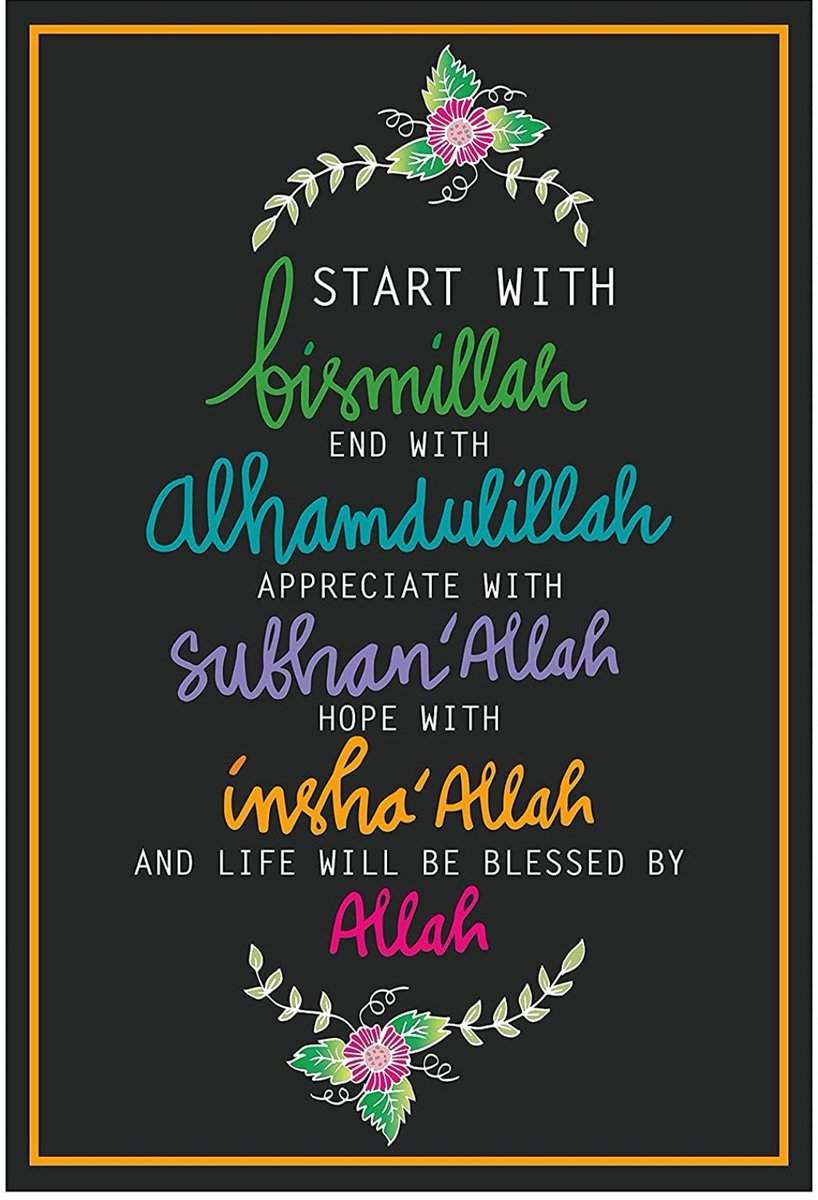 START WITH
bismillah
END WITH
Alhamdulillah
APPRECIATE WITH
subhan'Allah
HOPE WITH
insha'Allah
AND LIFE WILL BE BLESSED BY
Allah